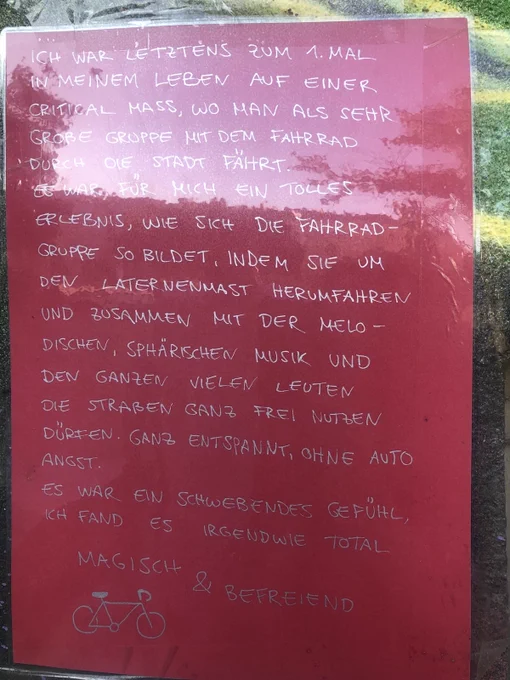 ICH WAR LETZTENS ZUM 1. MAL
IN MEINEM LEBEN AUF EINER
CRITICAL MASS, WO MAN ALS SEHR
GROßE GRUPPE MIT DEM FAHRRAD
DURCH DIE STADT FÄHRT.
ES WAR FÜR MICH EIN TOLLES
ERLEBNIS, WIE SICH DIE FAHRRAD-
GRUPPE SO BILDET, INDEM SIE UM
DEN LATERNENMAST HERUMFAHREN
UND ZUSAMMEN MIT DER MELO-
DISCHEN, SPHÄRISCHEN MUSIK UND
DEN GANZEN VIELEN LEUTEN
DIE STRAßEN GANZ FREI NUTZEN
DÜRFEN. GANZ ENTSPANNT, OHNE AUTO
ANGST.
ES WAR EIN SCHWEBENDES GEFÜHL,
ICH FAND ES IRGENDWIE TOTAL
MAGISCH
& BEFREIEND